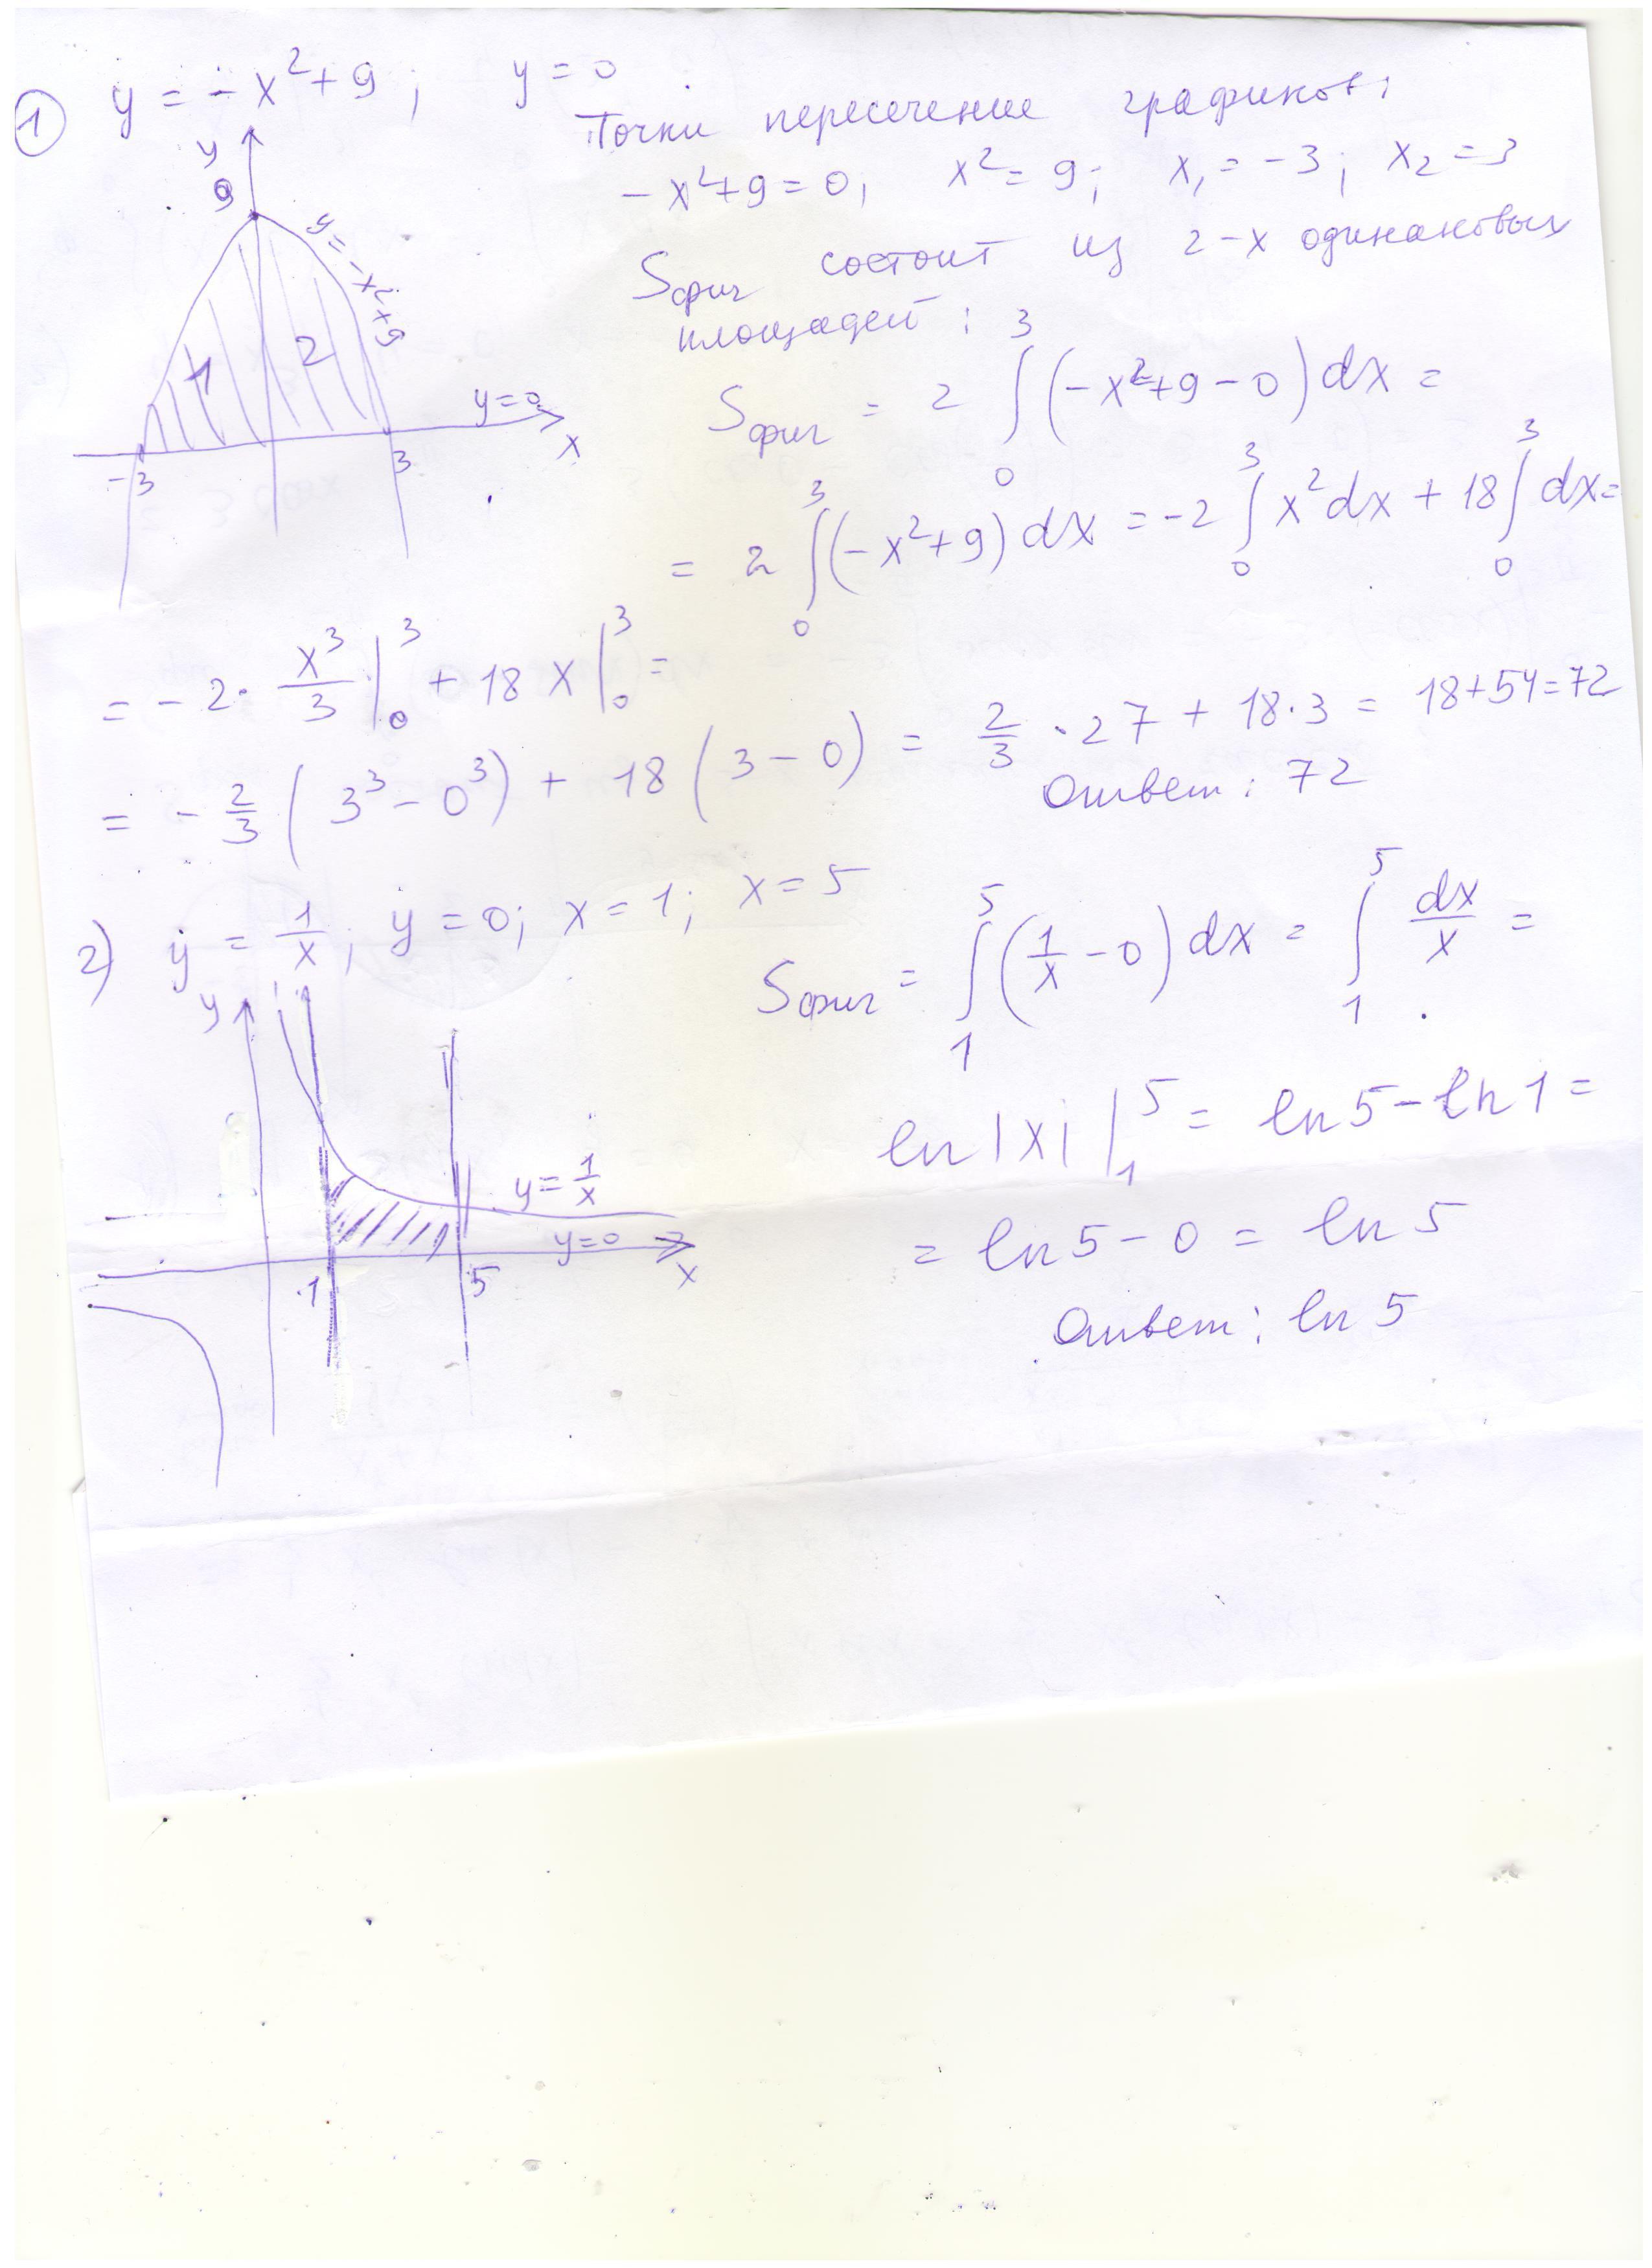 1 y = -x²+9; y = 0
Точки пересечение графиков:
-x²+9=0; x²=9; x₁=-3; x₂=3
Sфиг состоит из 2-х одинаковых
площадей:
Sфиг = 2 ∫₀³ (-x²+9-0) dx =
= 2 ∫₀³ (-x²+9) dx = -2 ∫₀³ x² dx + 18 ∫₀³ dx =
= -2 · x³/3 |₀³ + 18 x |₀³ =
= -2/3 (3³ - 0³) + 18 (3 - 0) = 2/3 · 27 + 18·3 = 18+54=72
Ответ: 72
y
9
y=-x²+9
1
2
y=0
-3
3
x
2) y = 1/x; y = 0; x = 1; x = 5
Sфиг = ∫₁⁵ (1/x - 0) dx = ∫₁⁵ dx/x =
ln|x| |₁⁵ = ln5 - ln1 =
= ln5 - 0 = ln5
Ответ: ln5
y
y=1/x
y=0
1
5
x